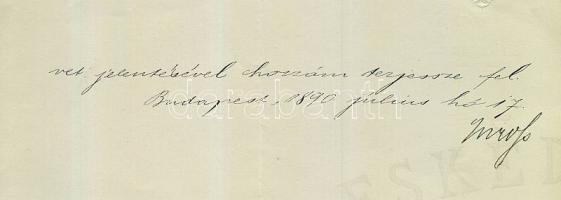 vet jelentésével hozzám terjessze fel.
Budapest, 1890 július hó 17.
darabanth